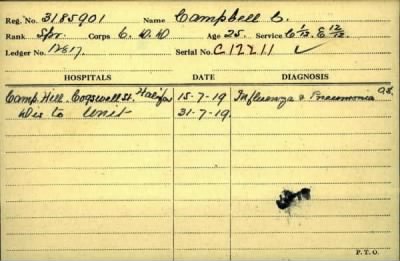 Reg. No. 3185901 Name Campbell C.
Rank Spr. Corps C.D.D Age 25. Service C 1/12. E 12/12.
Ledger No. Serial No. C17711 ✓
HOSPITALS DATE DIAGNOSIS
Camp Hill. Cogswell St. Halifax 15-7-19 Influenza & Pneumonia
Dis to Unit 31-7-19.
P.T.O.